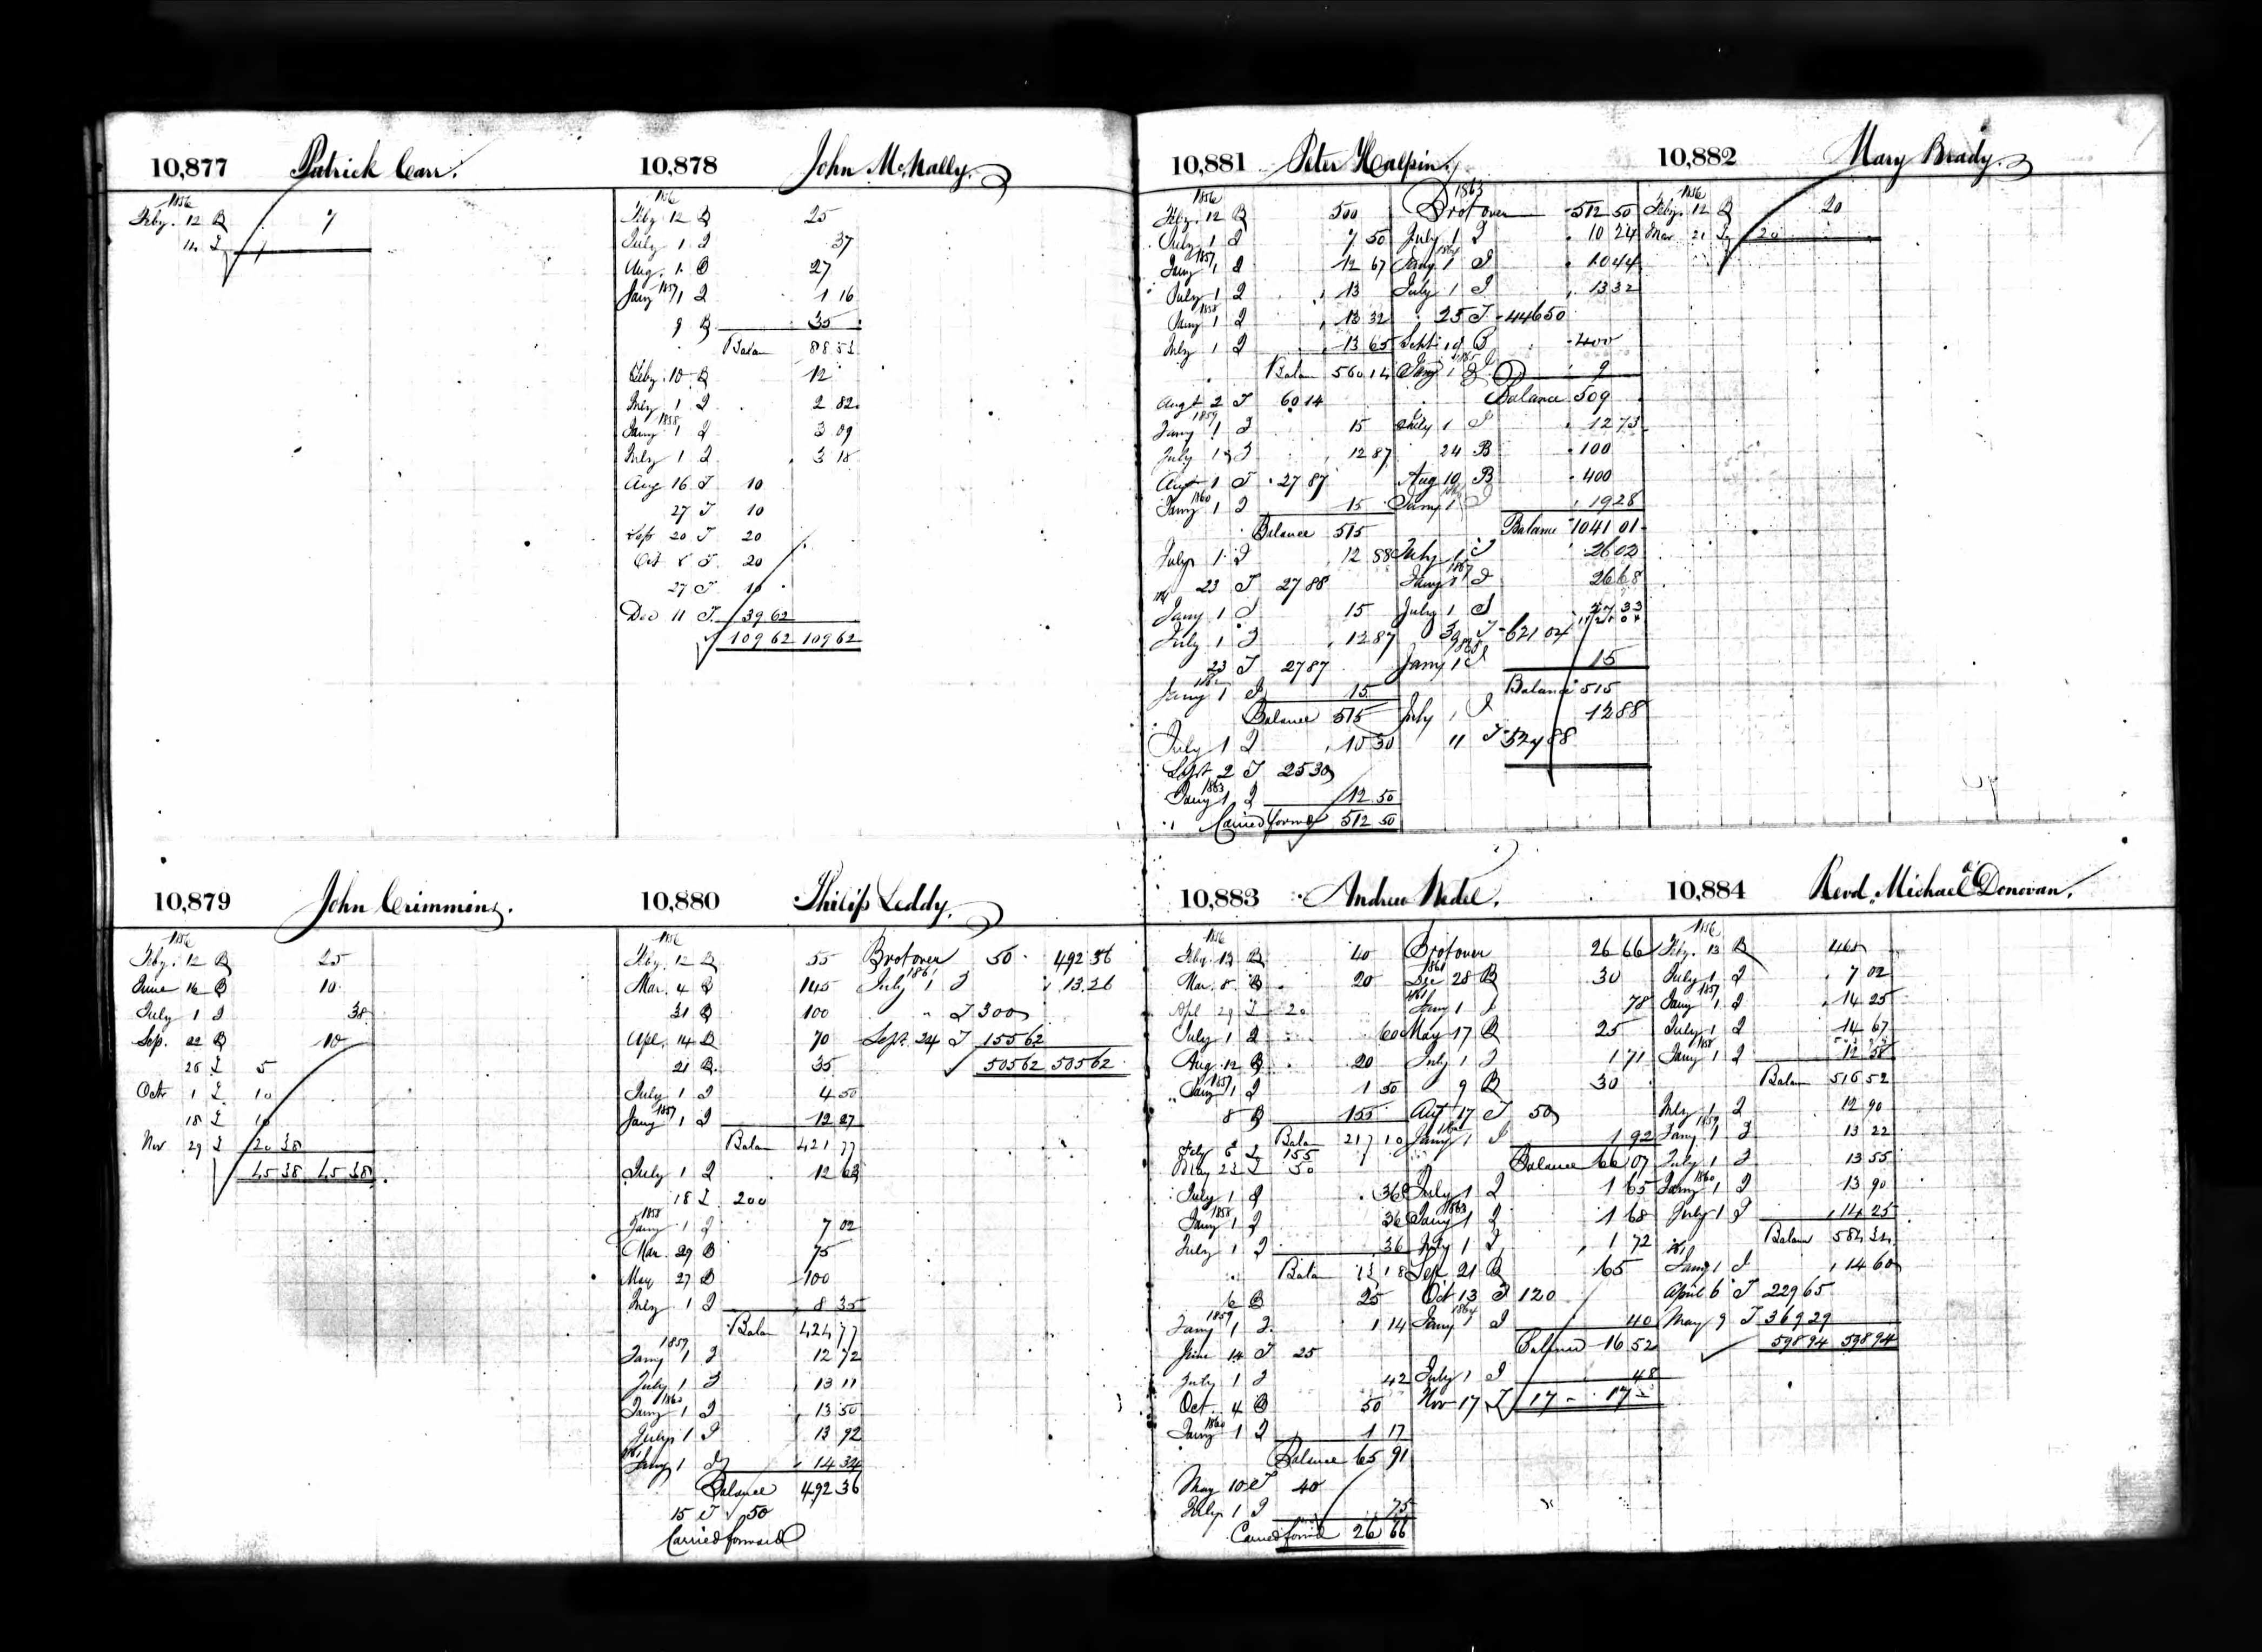 10,877 Patrick Carr.
1856
Feby. 12 B 7
14 T 7
10,878 John McNally.
1856
Feby 12 B 25
July 1 I 37
Aug. 1 B 27
Jany 1857 1 I 1 16
9 B 35
Balan 88 53
Feby. 10 B 12
July 1 I 2 82
Jany 1858 1 I 3 09
July 1 I 3 18
Aug 16 T 10
27 T 10
Sept 20 T 20
Oct 8 T 20
27 T 10
Dec 11 T 39 62
109 62 109 62
10,879 John Crimmins.
1856
Feby. 12 B 25
June 16 B 10
July 1 I 38
Sep. 22 B 10
26 T 5
Octr 1 T 10
18 T 10
Nov 29 T 20 38
45 38 45 38
10,880 Philip Leddy.
1856
Feby. 12 B 55
Mar. 4 B 145
31 B 100
Apl. 14 B 70
21 B 35
July 1 I 4 50
Jany 1857 1 I 12 27
Balan 421 77
July 1 I 12 63
18 T 200
1858
Jany 1 I 7 02
Mar. 29 B 75
May 27 B 100
July 1 I 8 35
Balan 424 77
1859
Jany 1 I 12 72
July 1 I 13 11
1860
Jany 1 I 13 50
July 1 I 13 92
1861
Jany 1 I 14 34
Balance 492 36
15 T 50
Carried forward
Brot over 50 492 36
1861
July 1 I 13.26
" T 300
Sept 24 T 155 62
505 62 505 62
10,881 Peter Halpin.
1856
Feby. 12 B 500
July 1 I 7 50
1857
Jany 1 I 12 67
July 1 I 13
1858
Jany 1 I 13 32
July 1 I 13 65
Balan 560 14
Augt 2 T 60 14
1859
Jany 1 I 15
July 1 I 12 87
Augt 1 T 27 87
1860
Jany 1 I 15
Balance 515
July 1 I 12 88
23 T 27 88
Jany 1 I 15
July 1 I 12 87
23 T 27 87
Jany 1 I 15
Balance 515
July 1 I 10 30
Sept 2 T 25 30
1863
Jany 1 I 12 50
Carried forward 512 50
1863
Brot over 512 50
July 1 I 10 24
1864
Jany 1 I 10 44
July 1 I 13 32
25 T 446 50
Sept 19 B 400
1865
Jany 1 I 9
Balance 509
July 1 I 12 73
24 B 100
Aug 10 B 400
Jany 1 I 19 28
Balance 1041 01
July 1 I 26 02
1867
Jany 1 I 26 68
July 1 I 27 33
1121 04
3 T 621 04
1868
Jany 1 I 15
Balance 515
July 1 I 12 88
" T 527 88
10,882 Mary Brady.
1856
Feby. 12 B 20
Mar 21 T 20
10,883 Andrew Nedel.
1856
Feby. 13 B 40
Mar. 8 B 20
Apl 29 T 20
July 1 I 60
Aug. 12 B 20
1857
Jany 1 I 1 50
8 B 155
Balan 217 10
Feby 6 T 155
May 23 T 50
July 1 I 36
1858
Jany 1 I 36
July 1 I 36
Balan 13 18
6 B 25
1859
Jany 1 I 1 14
June 14 T 25
July 1 I 42
Oct. 4 B 50
1860
Jany 1 I 1 17
Balance 65 91
May 10 T 40
July 1 I 75
Carried forwd 26 66
Brot over 26 66
Dec 28 B 30
1861
Jany 1 I 78
May 17 B 25
July 1 I 1 71
9 B 30
Oct 17 T 50
Jany 1 I 1 92
Balance 66 07
July 1 I 1 65
1863
Jany 1 I 1 68
July 1 I 1 72
Sep 21 B 65
Oct 13 T 120
1864
Jany 1 I 40
Balance 16 52
July 1 I 48
Nov 17 T 17 - 17 -
10,884 Revd. Michael O'Donovan.
1856
Feby. 13 B 468
July 1 I 7 02
1857
Jany 1 I 14 25
July 1 I 14 67
1858
Jany 1 I 12 58
Balan 516 52
July 1 I 12 90
1859
Jany 1 I 13 22
July 1 I 13 55
1860
Jany 1 I 13 90
July 1 I 14 25
Balan 584 34
1861
Jany 1 I 14 60
April 6 T 229 65
May 9 T 369 29
598 94 598 94